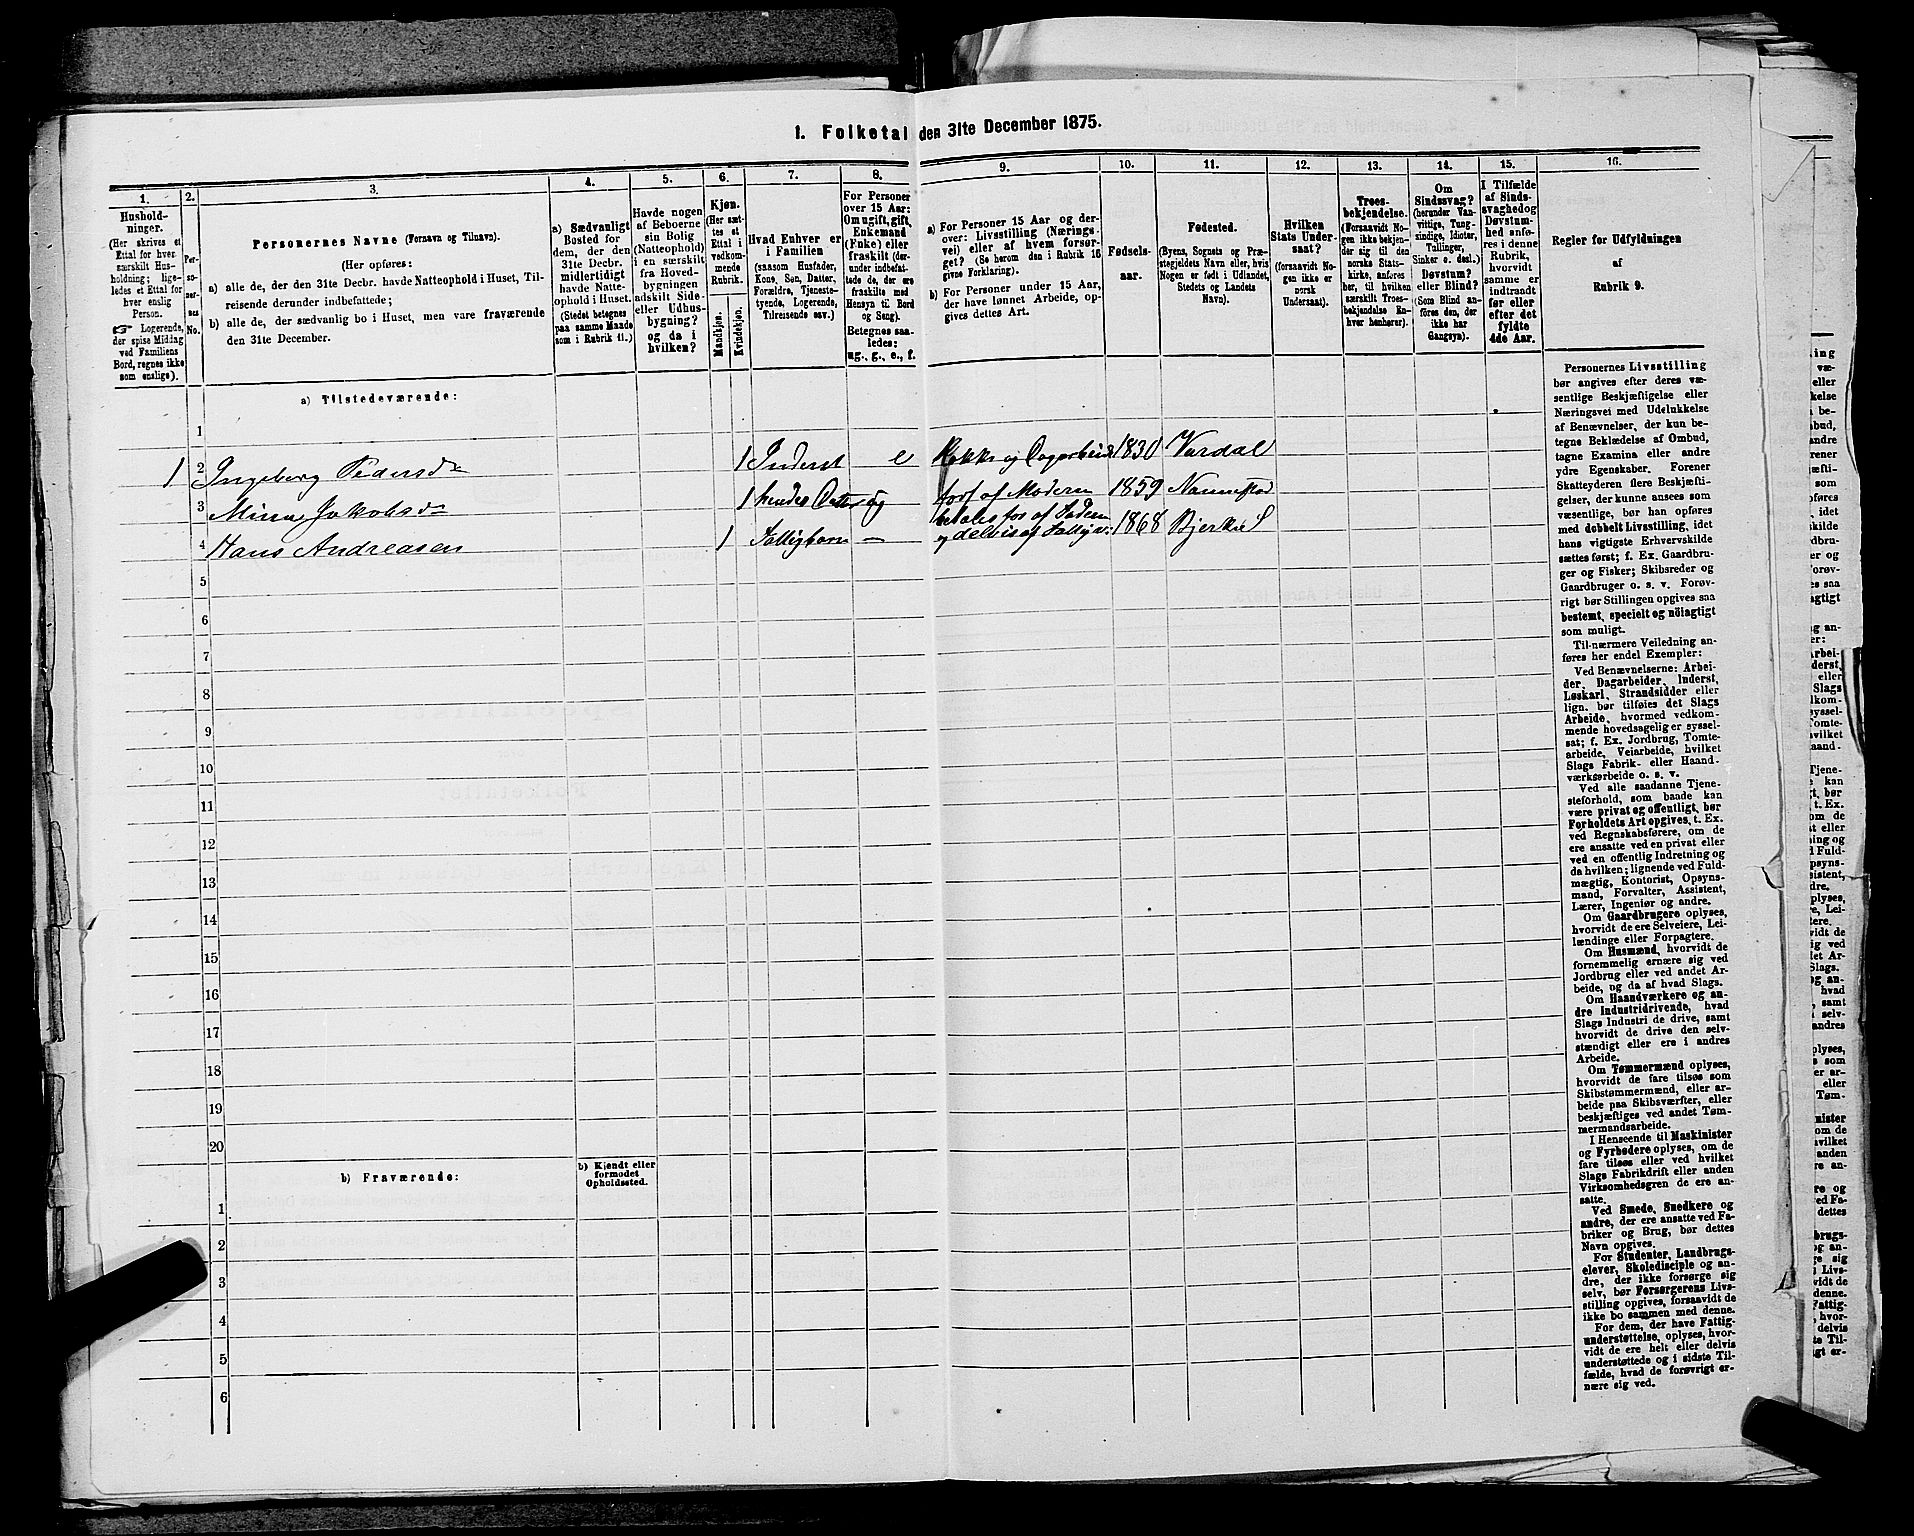 1. Folketal den 31te December 1875.
1. 2. 3. 4. 5. 6. 7. 8. 9. 10. 11. 12. 13. 14. 15. 16.
Hushold-
ninger.
(Her skrives et
Ettal for hver
særskilt Hus-
holdning; lige-
ledes et Ettal for
hver enslig
Person.
☞ Logerende,
der spise Middag
ved Familiens
Bord, regnes ikke
som enslige).
Per-
so-
ner-
nes
No.
Personernes Navne (Fornavn og Tilnavn).
(Her opføres:
a) alle de, der den 31te Decbr. havde Natteophold i Huset, Til-
reisende derunder indbefattede;
b) alle de, der sædvanlig bo i Huset, men vare fraværende
den 31te December.
a) Sædvanligt
Bosted for
dem, der den
31te Decbr.
midlertidigt
havde Natte-
ophold i Huset.
(Stedet betegnes
paa samme Maade
som i Rubrik 11.)
Havde nogen
af Beboerne
sin Bolig
(Natteophold)
i en særskilt
fra Hoved-
bygningen
adskilt Side-
eller Udhus-
bygning?
og da i
hvilken?
Kjøn.
(Her sæt-
tes et
Ettal i
vedkom-
mende
Rubrik.
Mandkjøn.
Kvindekjøn.
Hvad Enhver er
i Familien
(saasom Husfader,
Kone, Søn, Datter,
Forældre, Tjeneste-
tyende, Logerende,
Tilreisende osv.)
For Personer
over 15 Aar:
Om ugift, gift,
Enkemand
(Enke) eller
fraskilt (der-
under indbefat-
tede de, der ere
fraskilte med
Hensyn til Bord
og Seng).
Betegnes saa-
ledes:
ug., g., e., f.
a) For Personer 15 Aar og der-
over: Livsstilling (Nærings-
vei) eller af hvem forsør-
get? (Se herom den i Rubrik 16
givne Forklaring).
b) For Personer under 15 Aar,
der have lønnet Arbeide, op-
gives dettes Art.
Fødsels-
aar.
Fødested.
(Byens, Sognets og Præ-
stegjeldets Navn eller, hvis
Nogen er født i Udlandet,
Stedets og Landets
Navn).
Hvilken
Stats Under-
saat?
(forsaavidt No-
gen ikke er
norsk
Undersaat).
Troes-
bekjendelse.
(Forsaavidt No-
gen ikke bekjen-
der sig til den
norske Stats-
kirke, anføres
her, til hvilken
særskilt Troes-
bekjendelse En-
hver henhører).
Om
Sindssvag?
(herunder Van-
vittige, Tung-
sindige, Idioter,
Tullinger,
Sinker o. desl.)
Døvstum?
eller Blind?
(Som Blind an-
føres den, der
ikke har
Gangsyn).
I Tilfælde
af Sinds-
svaghed og
Døvstum-
hed anfø-
res i denne
Rubrik,
hvorvidt
samme er
indtraadt
før eller
efter det
fyldte
4de Aar.
Regler for Udfyldningen
af
Rubrik 9.
a) Tilstedeværende:
1
1 2 Ingeborg Pedersdr 1 Inderst e 1830 Vardal
3 Minna Jakobsdr 1 hendes Datter ug fors. af Moderen 1859 Nannestad
4 Hans Andreasen 1 Fattigbarn — betales for af Faderen
og delvis af Fattigv: 1868 Bjerke S
5
6
7
8
9
10
11
12
13
14
15
16
17
18
19
20
b) Fraværende:
b) Kjendt eller
formodet
Opholdssted.
1
2
3
4
5
6
Personernes Livsstilling
bør angives efter deres væ-
sentlige Beskjæftigelse eller
Næringsvei med Udelukkelse
af Benævnelser, der kun be-
tegne Beklædelse af Ombud,
tagne Examina eller andre
ydre Egenskaber. Forener
Skatteyderen flere Beskjæfti-
gelser, der kunne ansees som
væsentlige, bør han opføres
med dobbelt Livsstilling, idet
hans vigtigste Erhvervskilde
sættes først; f. Ex. Gaardbru-
ger og Fisker; Skibsreder og
Gaardbruger o. s. v. Forøv-
rigt bør Stillingen opgives saa
bestemt, specielt og nöiagtigt
som muligt.
Til nærmere Veiledning an-
føres her endel Exempler:
Ved Benævnelserne: Arbei-
der, Dagarbeider, Inderst,
Løskarl, Strandsidder eller
lign. bør tilføies det Slags
Arbeide, hvormed vedkom-
mende hovedsagelig er syssel-
sat; f. Ex. Jordbrug, Tomte-
arbeide, Veiarbeide, hvilket
Slags Fabrik- eller Haand-
værksarbeide o. s. v.
Ved alle saadanne Tjene-
steforhold, som baade kan
være privat og offentligt, bør
Forholdets Art opgives, t. Ex.
ved Regnskabsførere, om de
ere ansatte ved en privat eller
ved en offentlig Indretning og
da hvilken; lignende ved Fuld-
mægtig, Kontorist, Opsyns-
mand, Forvalter, Assistent,
Lærer, Ingeniør og andre.
Om Gaardbrugere oplyses,
hvorvidt de ere Selveiere, Lei-
lændinge eller Forpagtere.
Om Husmænd, hvorvidt de
fornemmelig ernære sig ved
Jordbrug eller ved andet Ar-
beide, og da af hvad Slags.
Om Haandværkere og an-
dre Industridrivende, hvad
Slags Industri de drive, samt
hvorvidt de drive den selv-
stændigt eller ere i andres
Arbeide.
Om Tømmermænd oplyses,
hvorvidt de fare tilsøs som
Skibstømmermænd, eller ar-
beide paa Skibsværfter, eller
beskjæftiges ved andet Tøm-
mermandsarbeide.
I Henseende til Maskinister
og Fyrbødere oplyses, om de
fare tilsøs eller ved hvilket
Slags Fabrikdrift eller anden
Virksomhedsgren de ere an-
satte.
Ved Smede, Snedkere og
andre, der ere ansatte ved Fa-
briker og Brug, bør dettes
Navn opgives.
For Studenter, Landbrugs-
elever, Skoledisciple og an-
dre, der ikke forsørge sig
selv, bør Forsørgerens Livs-
stilling opgives, forsaavidt de
ikke bo sammen med denne.
For dem, der have Fattig-
understøttelse, oplyses, hvor-
vidt de ere helt eller delvis
understøttede og i sidste Til-
fælde, hvad de forøvrigt er-
nære sig ved.